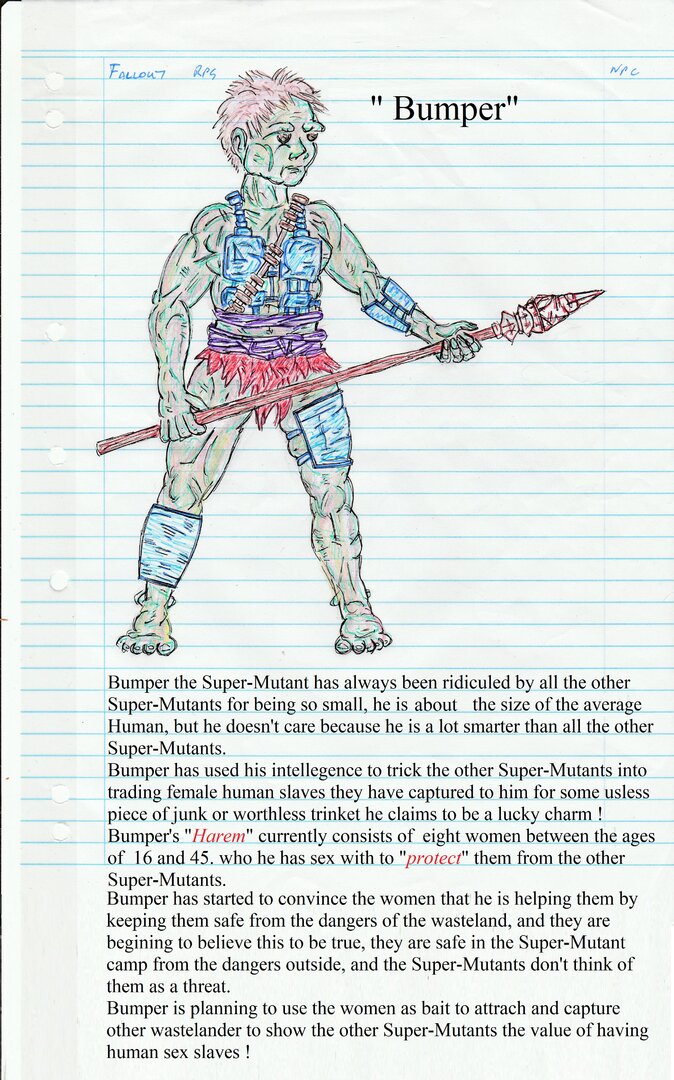 Fallout RPG NPC
" Bumper"
Bumper the Super-Mutant has always been ridiculed by all the other
Super-Mutants for being so small, he is about the size of the average
Human, but he doesn't care because he is a lot smarter than all the other
Super-Mutants.
Bumper has used his intellegence to trick the other Super-Mutants into
trading female human slaves they have captured to him for some usless
piece of junk or worthless trinket he claims to be a lucky charm !
Bumper's "Harem" currently consists of eight women between the ages
of 16 and 45. who he has sex with to "protect" them from the other
Super-Mutants.
Bumper has started to convince the women that he is helping them by
keeping them safe from the dangers of the wasteland, and they are
begining to believe this to be true, they are safe in the Super-Mutant
camp from the dangers outside, and the Super-Mutants don't think of
them as a threat.
Bumper is planning to use the women as bait to attrach and capture
other wastelander to show the other Super-Mutants the value of having
human sex slaves !